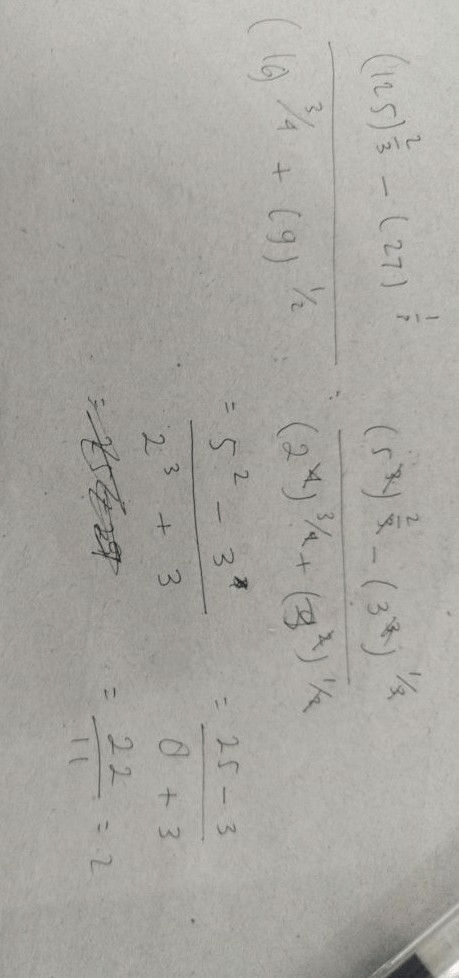 (125)^2/3 - (27)^1/3
(16)^3/4 + (9)^1/2
= (5^3)^2/3 - (3^3)^1/3
(2^4)^3/4 + (3^2)^1/2
= 5^2 - 3
2^3 + 3
= 25 - 3
8 + 3
= 22/11 = 2